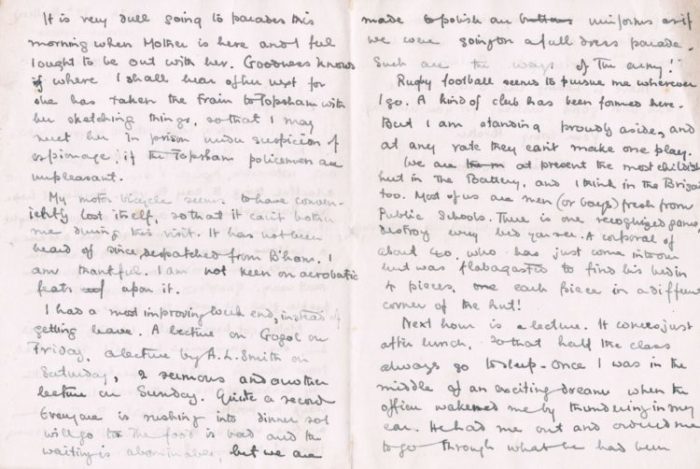 It is very dull going to parades this
morning when Mother is here and I feel
I ought to be out with her. Goodness knows
where I shall hear of her next for
she has taken the train to Topsham with
her sketching things, so that I may
meet her in prison under suspicion of
espionage, if the Topsham policemen are
unpleasant.
My motor bicycle seems to have conven-
iently lost itself, so that it can't bother
me during this visit. It has not been
heard of since despatched from B'ham. I
am thankful. I am not keen on acrobatic
feats upon it.
I had a most improving week end, instead of
getting leave. A lecture on Gogol on
Friday, a lecture by A.L. Smith on
Saturday, 2 sermons and another
lecture on Sunday. Quite a record
Everyone is rushing into dinner so I
will go to the food is bad and the
waiting is abominable, but we are
made to polish our buttons uniforms as if
we were going on a full dress parade.
Such are the ways of the army!
Rugby football seems to pursue me wherever
I go. A kind of club has been formed here.
But I am standing proudly aside, and
at any rate they can't make one play.
We are at present the most childish
hut in the Battery, and I think in the Brig
too. Most of us are men (or boys) fresh from
Public Schools. There is one recognized game,
destroy every bed you see. A corporal of
about 40, who has just come into our
hut was flabagasted to find his bed in
4 pieces, one each piece in a different
corner of the hut!
Next hour is a lecture. It comes just
after lunch, so that half the class
always go to sleep. Once I was in the
middle of an exciting dream when the
officer wakened me by thundering in my
ear. He had me out and ordered me
to go through what he had been